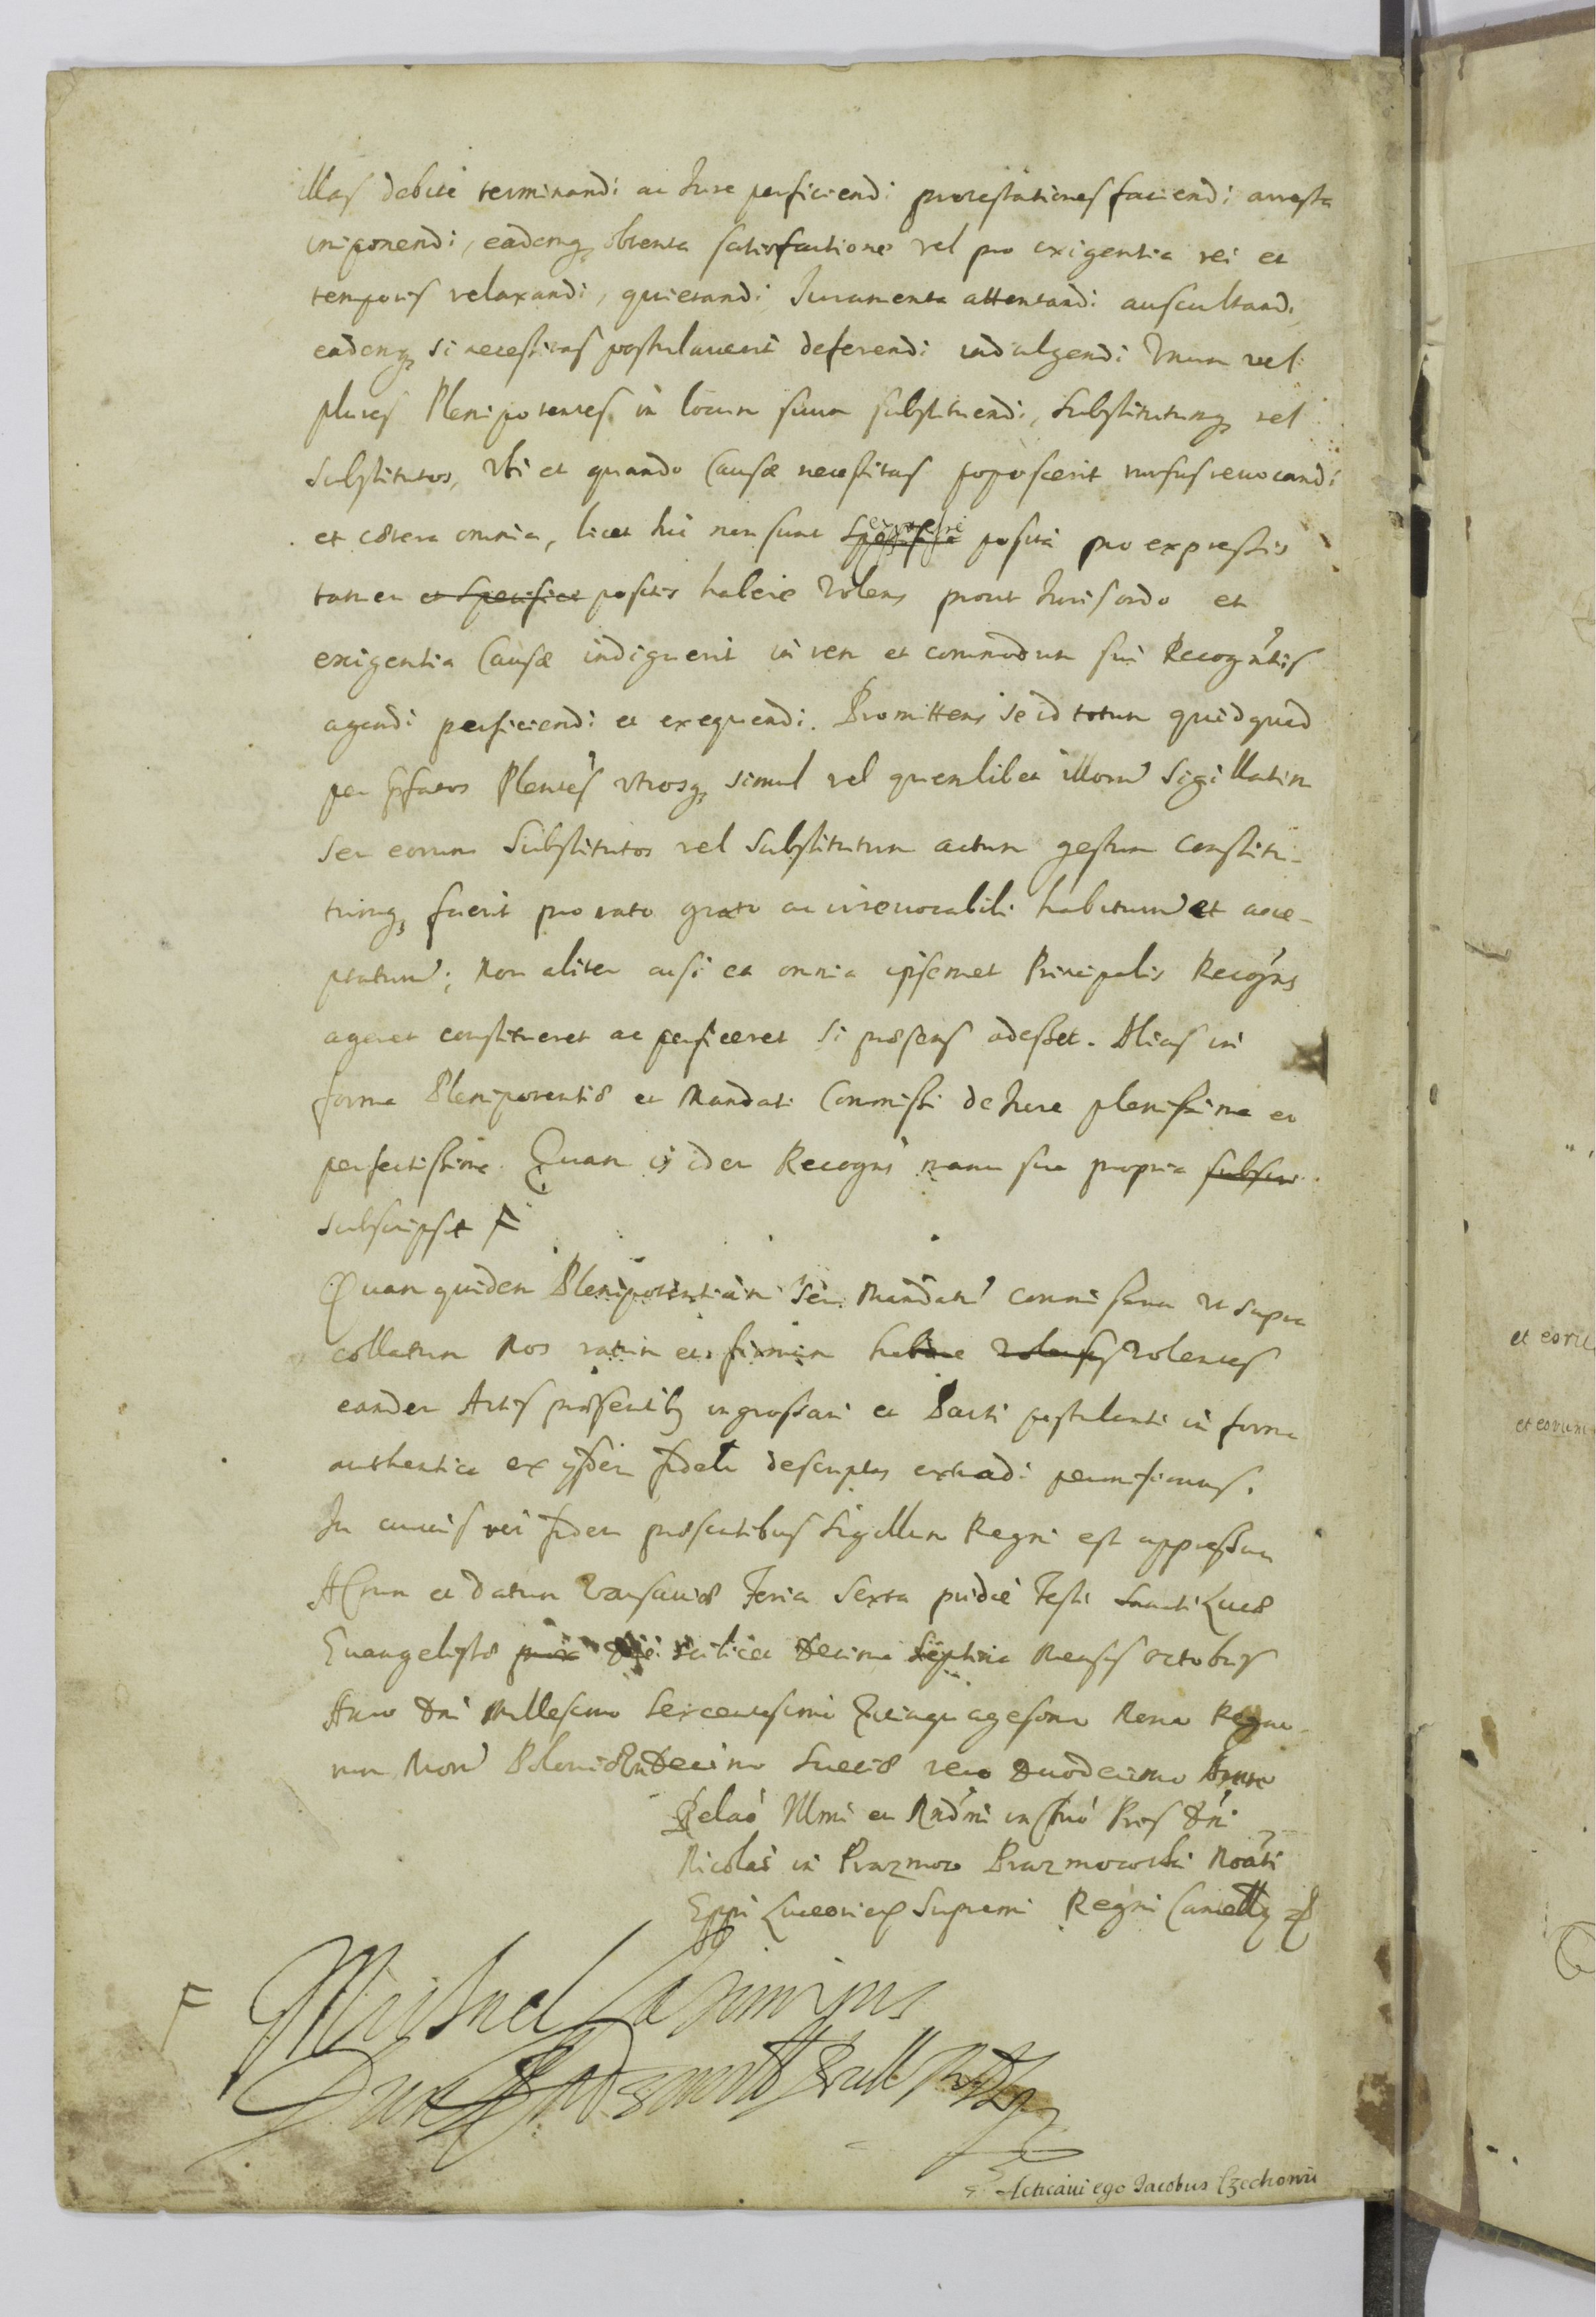 illas debite terminandi ac Jure perficiendi protestationes faciendi arresta
imponendi, eademq obtenta satisfactione vel pro exigentia rei et
temporis relaxandi, quietandi Juramenta attentandi auscultandi
eademq si necessitas postulaverit deferendi indulgendi Unum vel
plures Plenipotentes in locum suum substituendi, substitutumq vel
substitutos, Ubi et quando Causæ necessitas poposcerit rursus revocandi
et cætera omnia, licet hic non sunt specifice expresse posita pro expressis
tamen et specifice positis habere Volens prout Juris ordo et
exigentia Causæ indiguerit in rem et commodum sui Recogntis
agendi perficiendi et exequendi. Promittens se id totum quidquid
per Pfatos Plentes Utrosq simul vel quemlibet illorum Sigillatim
seu eorum Substitutos vel Substitutum actum gestum constitu-
tumq fuerit pro rato grato ac irrevocabili habiturum et acce-
ptaturum; Non aliter acsi ea omnia ipsemet Principalis Recogns
ageret constitueret ac perficeret si præsens adesset. Alias in
forma Plenipotentiæ et Mandati Commissi de Jure plenissima et
perfectissima. Quam is idem Recogns manu sua propria subscri
subscripsit F
Quam quidem Plenipotentiam seu Mandatu commissum ut supra
collatum Nos ratum et firmum habere volens Volentes
eandem Actis præsentib ingrossari et Parti postulanti in forma
authentica ex ijsdem fideli descriptos extradi permisimus.
In cuius rei fidem præsentibus Sigillum Regni est appressum
Actum et datum Varsaviæ Feria Sexta pridie Festi Sancti Lucæ
Evangelistæ die scilicet Decima Septima Mensis Octobris
Anno Dni Millesimo Sexcentesimo Quinquagesimo Nono Regno-
rum Nrorum Poloniæ Undecimo Sueciæ vero Duodecimo Anno
Relao Illmi et Rndmi in Chro Pris Dni
Nicolai in Prazmow Prazmowski Noati
Eppi Luceorien Supremi Regni Cancellij
F Michael Casimirus
Dux Radzivill
Acticavi ego Jacobus Czechowi